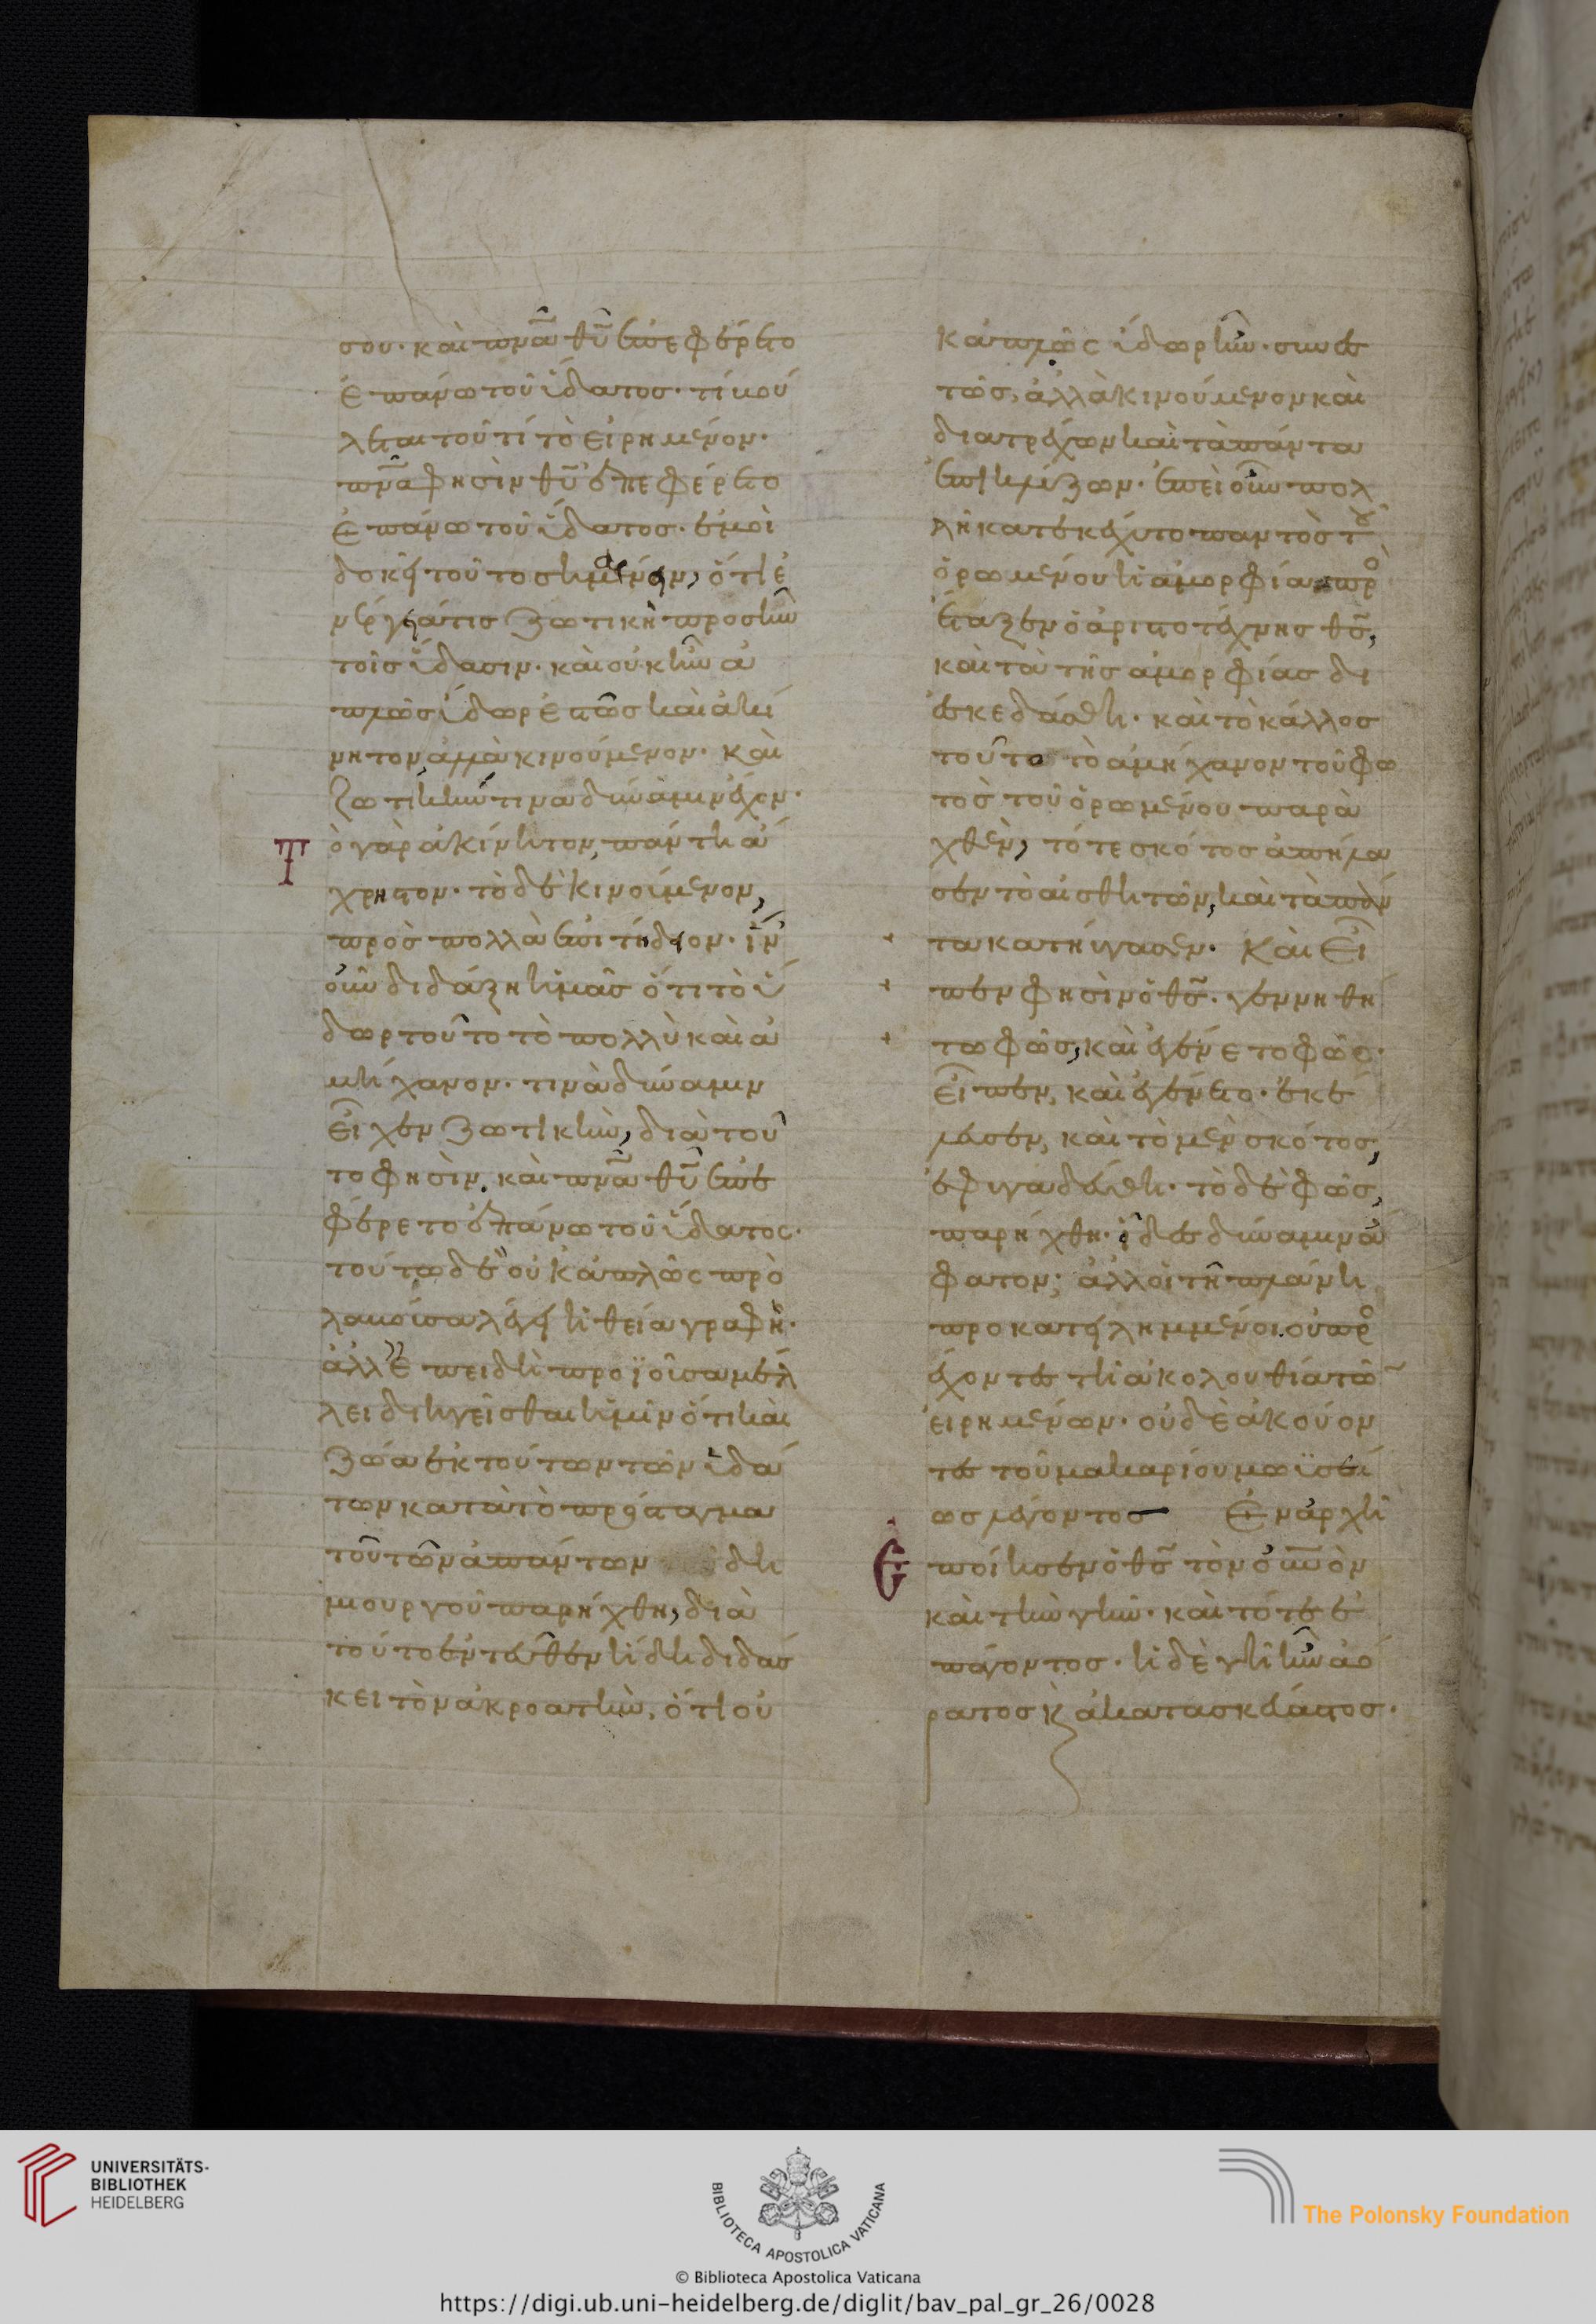 σου· καὶ πνᾶ θῦ ἐπεφέρετο
ἐπάνω τοῦ ὕδατος· τί βού
λεται τοῦτί τὸ εἰρημένον·
πνᾶ φησὶν θῦ ἐπεφέρετο
ἐπάνω τοῦ ὕδατος· ἐμοὶ
δοκεῖ τοῦτο σημαίνειν, ὅτι ἐ
νέργειά τις ζωτικὴ προσῆν
τοῖς ὕδασιν· καὶ οὐκ ἦν ἁ
πλῶς ὕδωρ ἑστὼς καὶ ἀκί
νητον ἀλλὰ κινούμενον· καὶ
ζωτικήν τινα δύναμιν ἔχον·
Τὸ γὰρ ἀκίνητον, πάντη ἄ
χρηστον· τὸ δὲ κινούμενον,
πρὸς πολλὰ ἐπιτήδειον· ἵν'
οὖν διδάξῃ ἡμᾶς ὅτι τὸ ὕ
δωρ τοῦτο τὸ πολλὺ καὶ ἀ
μήχανον· τινὰ δύναμιν
εἶχεν ζωτικήν, διὰ τοῦ
το φησὶν, καὶ πνᾶ θῦ ἐπε
φέρετο ἐπάνω τοῦ ὕδατος·
τοῦτο δὲ οὐκ ἁπλῶς προ
λαβοῦσα λέγει ἡ θεία γραφή·
ἀλλ' ἐπειδὴ προϊοῦσα μέλ
λει διηγεῖσθαι ἡμῖν ὅτι καὶ
ζῶα ἐκ τούτων τῶν ὑδά
των κατὰ τὸ πρόσταγμα
τοῦ τῶν ἁπάντων δη
μιουργοῦ παρήχθη, διὰ
τοῦτο ἐντεῦθεν ἤδη διδάσ
κει τὸν ἀκροατὴν, ὅτι οὐ
κ ἁπλῶς ὕδωρ ἦν· συνεσ
τὼς, ἀλλὰ κινούμενον καὶ
διατρέχων καὶ τὰ πάντα
ἐπικλύζων· ἐπεὶ οὖν πολ
λὴ κατεκέχυτο παντὸς τοῦ
ὁρωμένου ἡ ἀμορφία προσ
έταξεν ὁ ἀριστοτέχνης θς,
καὶ τὰ τῆς ἀμορφίας δι
εσκεδάσθη· καὶ τὸ κάλλος
τοῦτο τὸ ἀμήχανον τοῦ φω
τὸς τοῦ ὁρωμένου παρα
χθὲν, τότε σκότος ἀπήλα
σεν τὸ αἰσθητὸν, καὶ τὰ πάν
τα κατηύγασεν· Καὶ εἶ
πεν φησὶν ὁ θς· γεννηθή
τω φῶς, καὶ ἐγένετο φῶς·
εἶπεν, καὶ ἐγένετο· ἐκέ
λευσεν, καὶ τὸ μὲν σκότος,
ἐφυγαδεύθη· τὸ δὲ φῶς,
παρήχθη· εἶδες δύναμιν ἄ
φατον; ἀλλ' οἱ τῇ πλάνῃ
προκατειλημμένοι οὐ προσ
έχοντες τῇ ἀκολουθία τῶν
εἰρημένων· οὐδὲ ἀκούον
τες τοῦ μακαρίου μωϋσέ
ως λέγοντος Ἐν ἀρχῇ
Ἐποίησεν ὁ θς τὸν οὐνὸν
καὶ τὴν γῆν· καὶ τότε ἐ
πάγοντος· ἡ δὲ γῆ ἦν ἀό
ρατος κ ἀκατασκεύαστος·
UNIVERSITÄTS-
BIBLIOTHEK
HEIDELBERG
BIBLIOTECA APOSTOLICA VATICANA
The Polonsky Foundation
© Biblioteca Apostolica Vaticana
https://digi.ub.uni-heidelberg.de/diglit/bav_pal_gr_26/0028